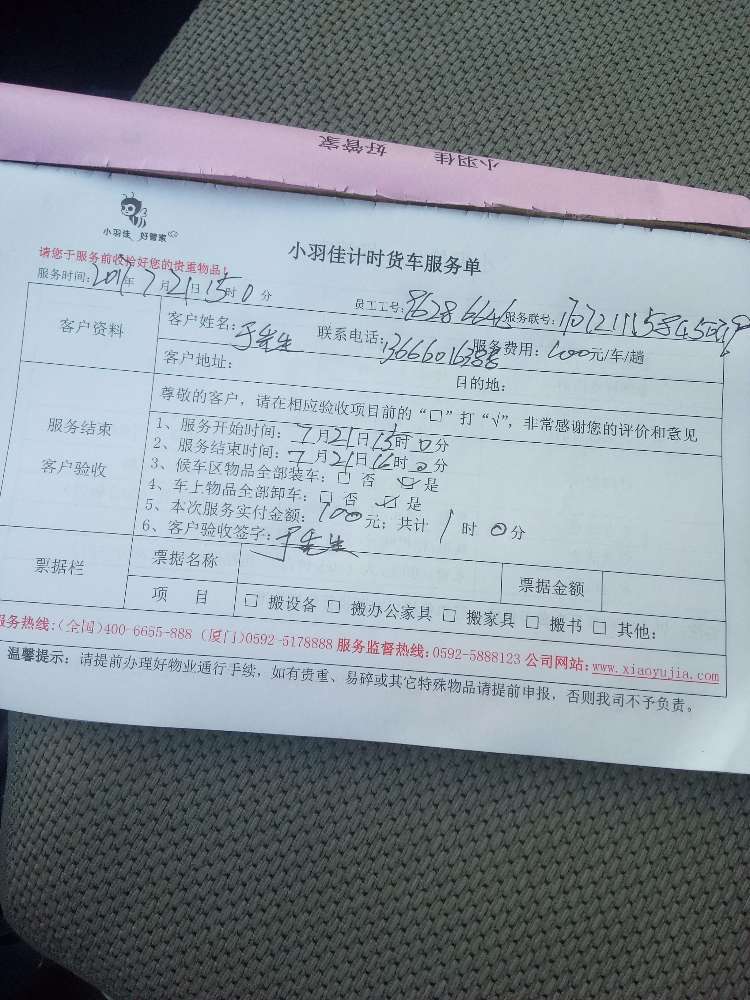 小羽佳 好管家
小羽佳 好管家
小羽佳计时货车服务单
请您于服务前收拾好您的贵重物品！
服务时间：2017年7月21日15时0分 员工工号： 服务联号：
客户资料 客户姓名：于先生 联系电话： 服务费用：100元/车/趟
客户地址： 目的地：
尊敬的客户，请在相应验收项目前的“□”打“√”，非常感谢您的评价和意见
服务结束
客户验收
1、服务开始时间：7月21日15时0分
2、服务结束时间：7月21日16时0分
3、候车区物品全部装车：□ 否 ☑ 是
4、车上物品全部卸车：□ 否 ☑ 是
5、本次服务实付金额：100元；共计1时0分
6、客户验收签字：于先生
票据栏 票据名称 票据金额
项 目 □ 搬设备 □ 搬办公家具 □ 搬家具 □ 搬书 □ 其他：
服务热线：(全国)400-6655-888 (厦门)0592-5178888 服务监督热线：0592-5888123 公司网站：www.xiaoyujia.com
温馨提示：请提前办理好物业通行手续，如有贵重、易碎或其它特殊物品请提前申报，否则我司不予负责。